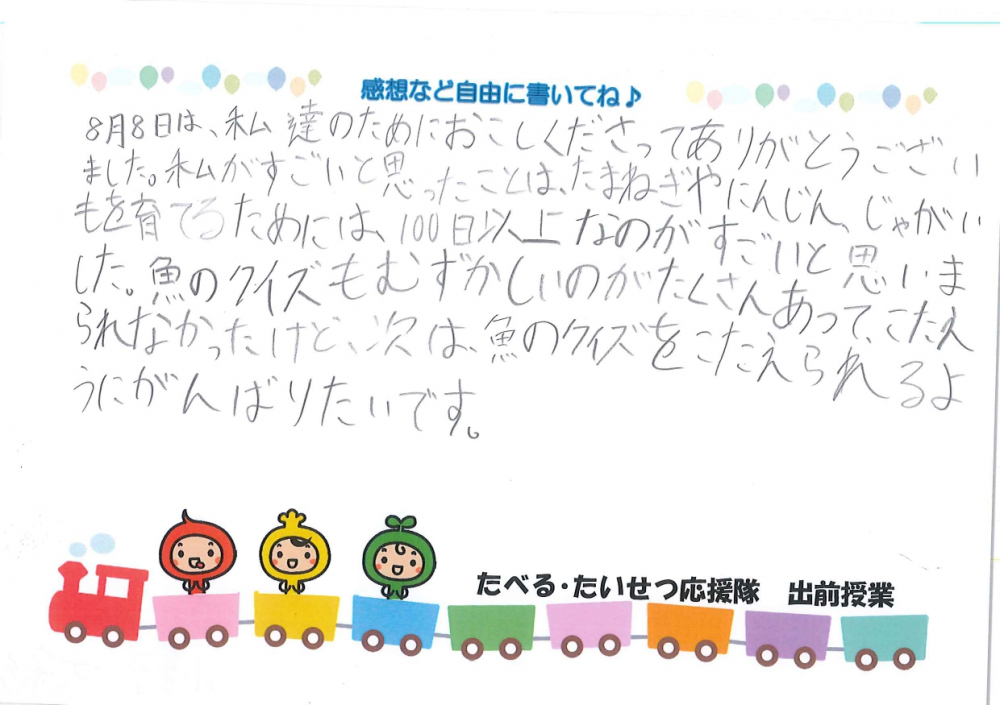 感想など自由に書いてね♪
8月8日は、私達のためにおこしくださってありがとうござい
ました。私がすごいと思ったことは、たまねぎやにんじん、じゃがい
もを育てるためには、100日以上なのがすごいと思いま
した。魚のクイズもむずかしいのがたくさんあって、こたえ
られなかったけど、次は、魚のクイズをこたえられるよ
うにがんばりたいです。
たべる・たいせつ応援隊 出前授業